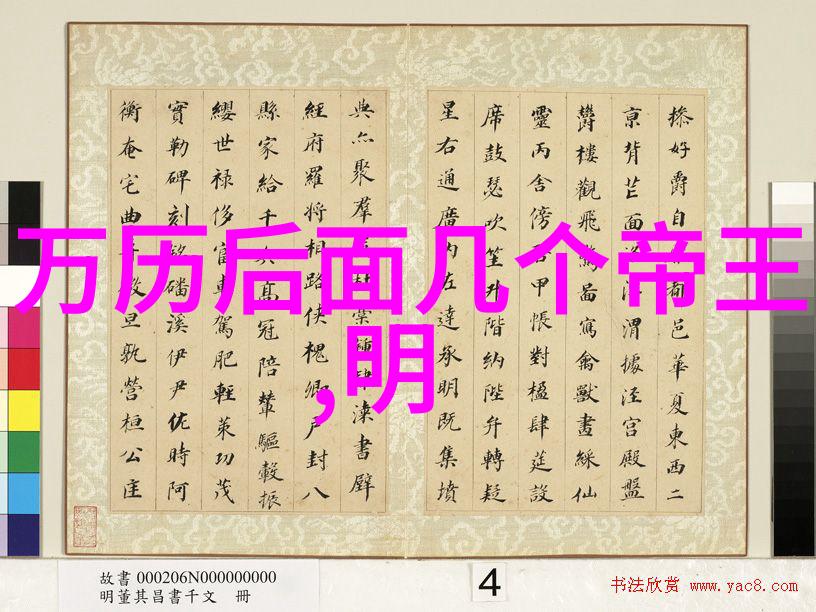 操好爵自都邑華夏東西二
京背芒面洛浮渭據涇宮殿盤
鬱樓觀飛驚圖寫禽獸畫綵仙
靈丙舍傍啓甲帳對楹肆筵設
席鼓瑟吹笙升階納陛弁轉疑
星右通廣內左達承明既集墳
典亦聚羣英杜稾鍾隸漆書壁
經府羅將相路俠槐卿戶封八
縣家給千兵高冠陪輦驅轂振
纓世祿侈富車駕肥輕策功茂
實勒碑刻銘磻溪伊尹佐時阿
衡奄宅曲阜微旦孰營桓公匡
万历后面几个帝王
,明
故書 000206N000000000
明董其昌書千文 冊
4
书法欣赏 www.yac8.com